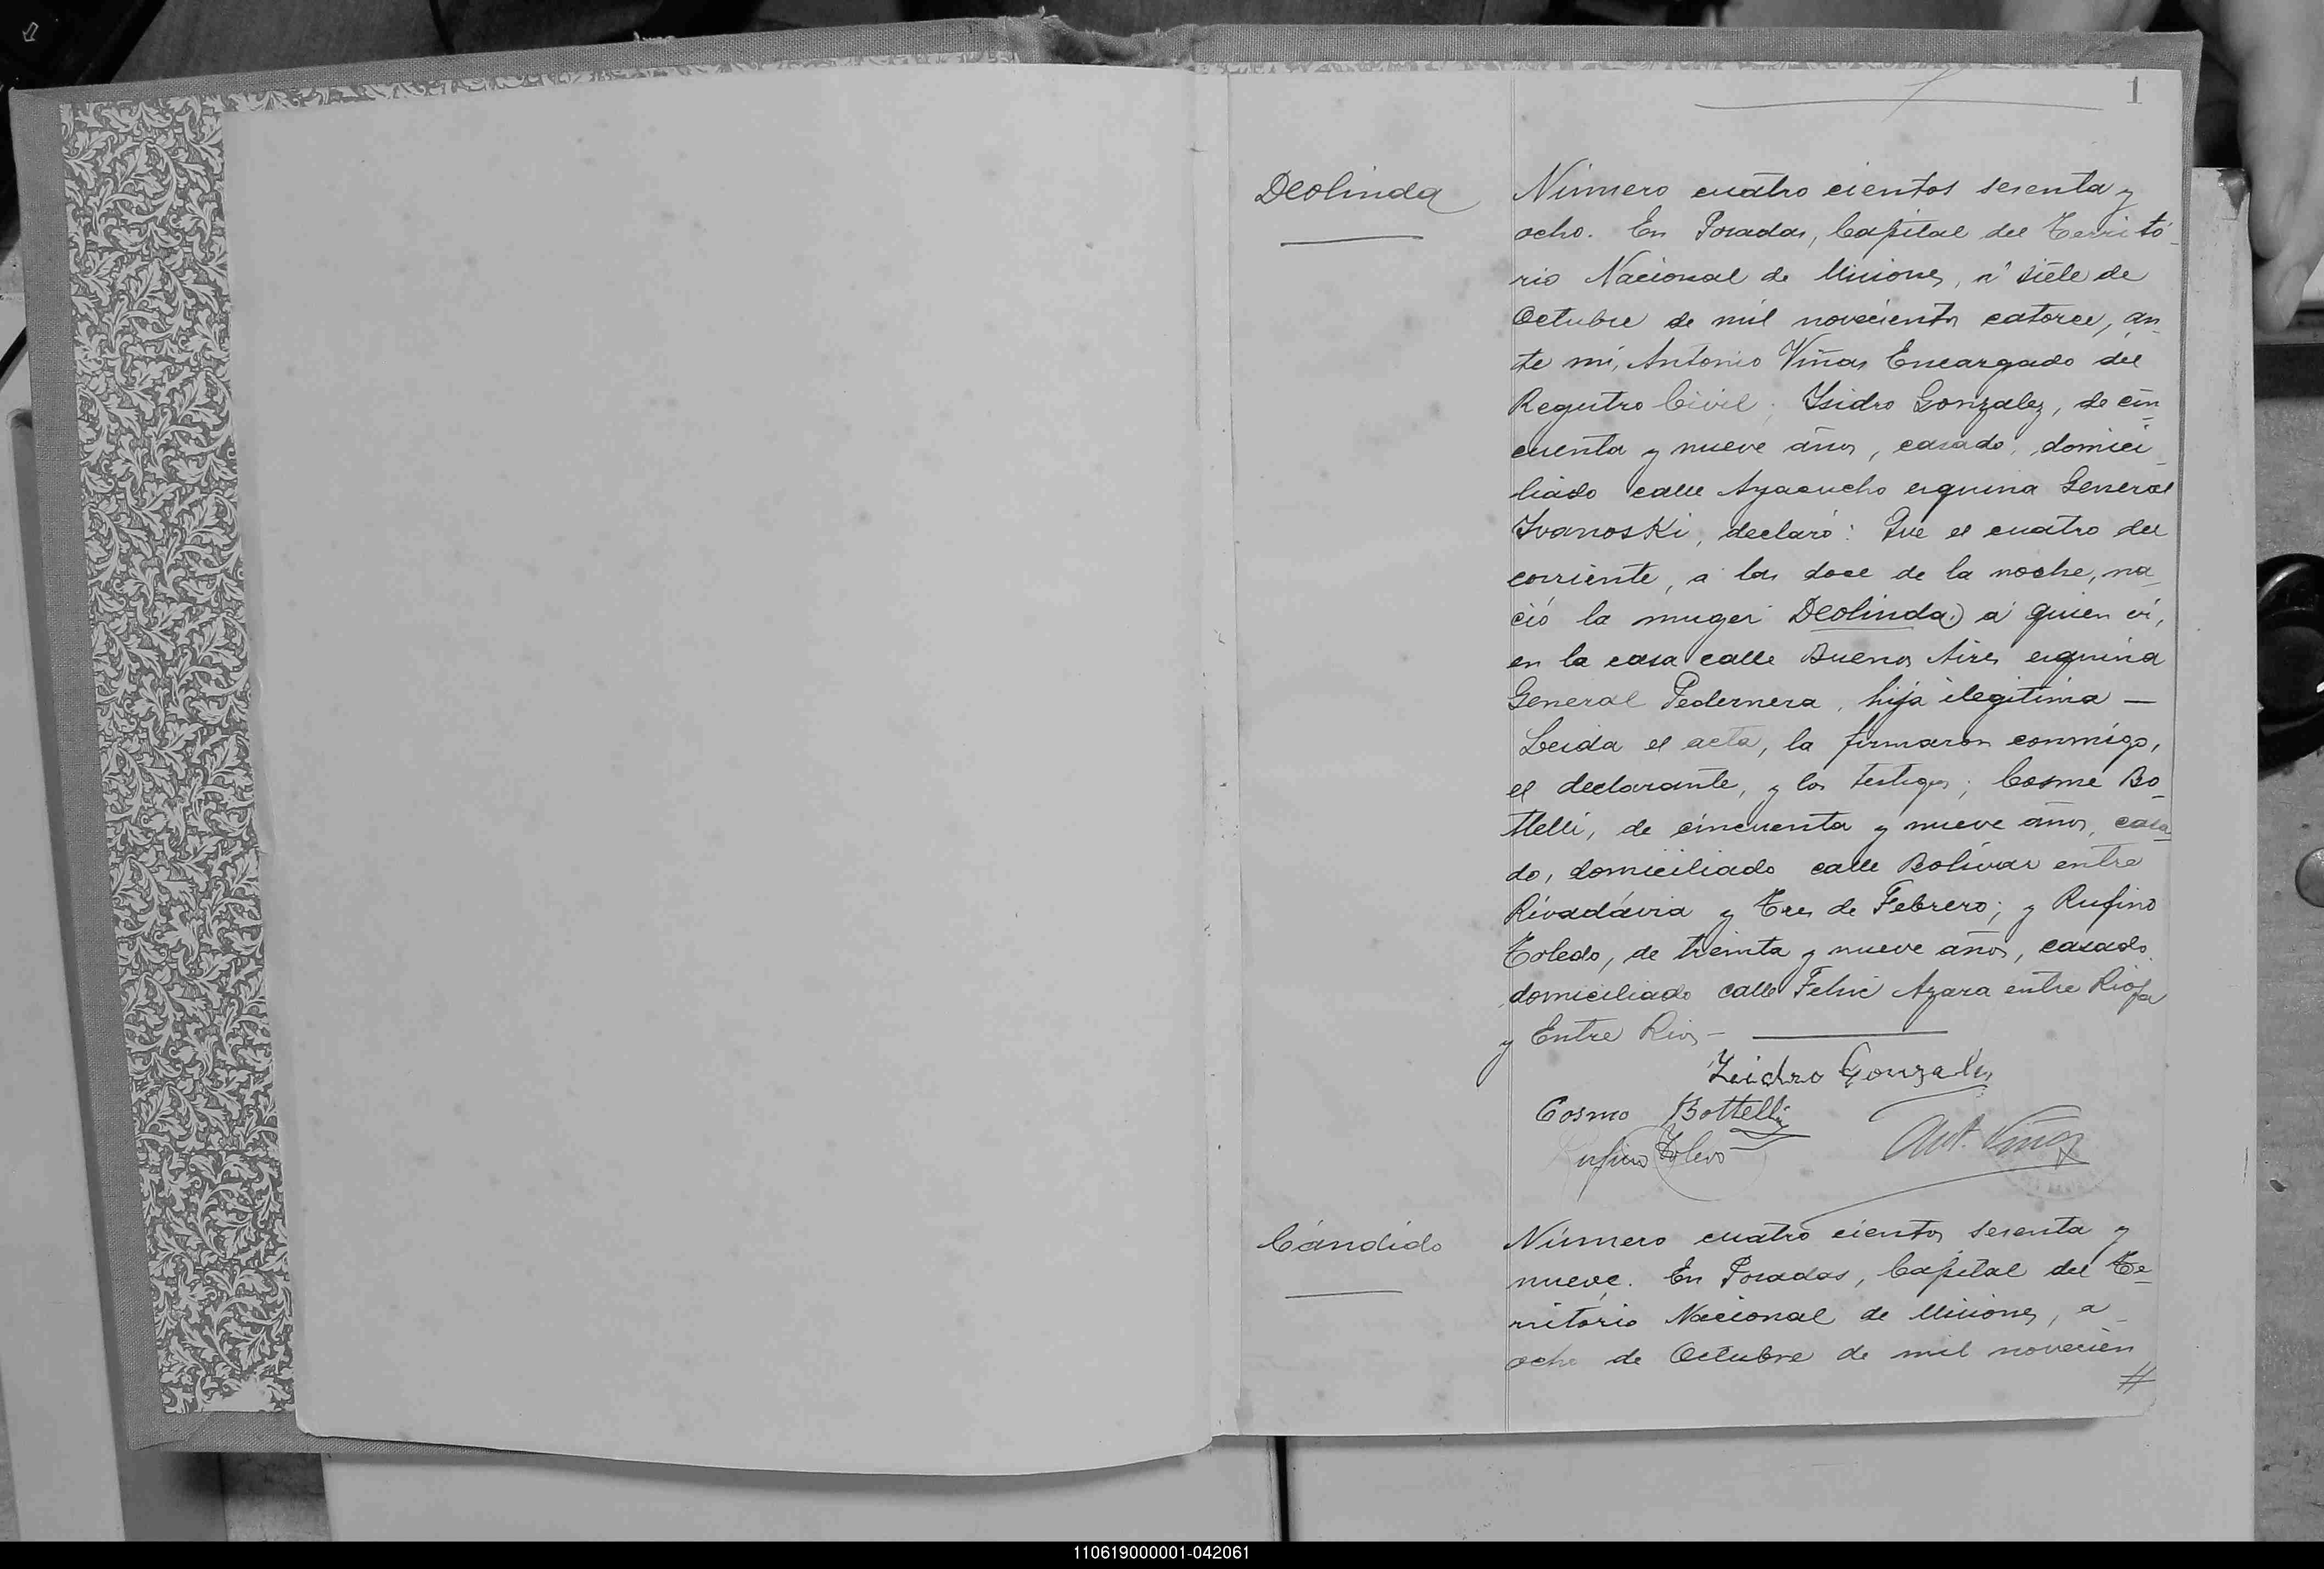 1
Deolinda
Número cuatro cientos sesenta y
ocho. En Posadas, Capital del Territó-
rio Nacional de Misiones, a siete de
Octubre de mil novecientos catorce, an-
te mi, Antonio Viñas Encargado del
Registro Civil; Isidro Gonzalez, de cin-
cuenta y nueve años, casado, domici-
liado calle Ayacucho esquina General
Ivanoski, declaró: Que el cuatro del
corriente, a las doce de la noche, na-
ció la muger Deolinda, a quien ví,
en la casa calle Buenos Aires esquina
General Pedernera, hija ilegitima —
Leida el acta, la firmaron conmigo,
el declarante, y los testigos; Cosme Bo-
ttelli, de cincuenta y nueve años, casa-
do, domiciliado calle Bolívar entre
Rivadávia y Tres de Febrero; y Rufino
Toledo, de treinta y nueve años, casado,
domiciliado calle Felix Azara entre Rioja
y Entre Rios —
Isidro Gonzales
Cosmo Bottelli
Rufino Toledo
Ant. Viñas
Cándido
Número cuatro cientos sesenta y
nueve. En Posadas, Capital del Te-
rritorio Nacional de Misiones, a
ocho de Octubre de mil novecien
#
110619000001-042061